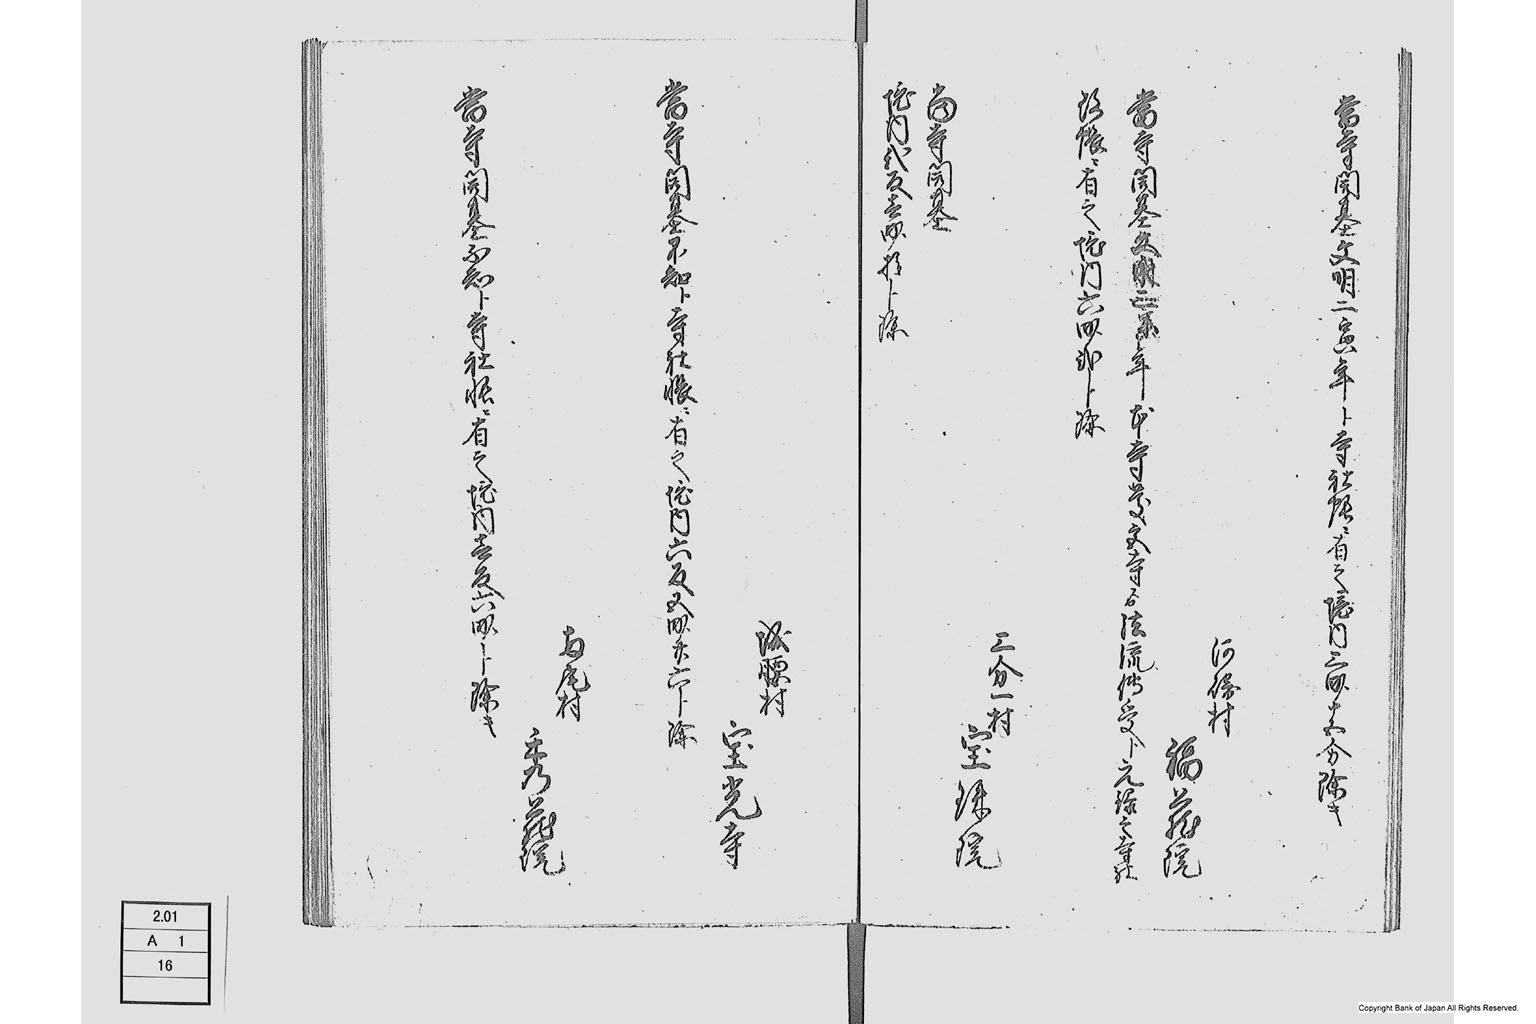 當寺開基文明二寅年ト寺社帳ニ有之境内三畝十五分除キ
河𦚰村
福蔵院
當寺開基文明二寅年本寺慶文寺ゟ法流傳受ト元禄之寺社
改帳ニ有之境内六畝卯ト除
三分一村
宝珠院
當寺開基
境内弐反壱畝拾ト除
城腰村
宝光寺
當寺開基不知ト寺社帳ニ有之境内六反又畝廿六ト除
高尾村
秀蔵院
當寺開基不知ト寺社帳ニ有之境内壱反六畝ト除キ
2.01
A 1
16
Copyright Bank of Japan All Rights Reserved.